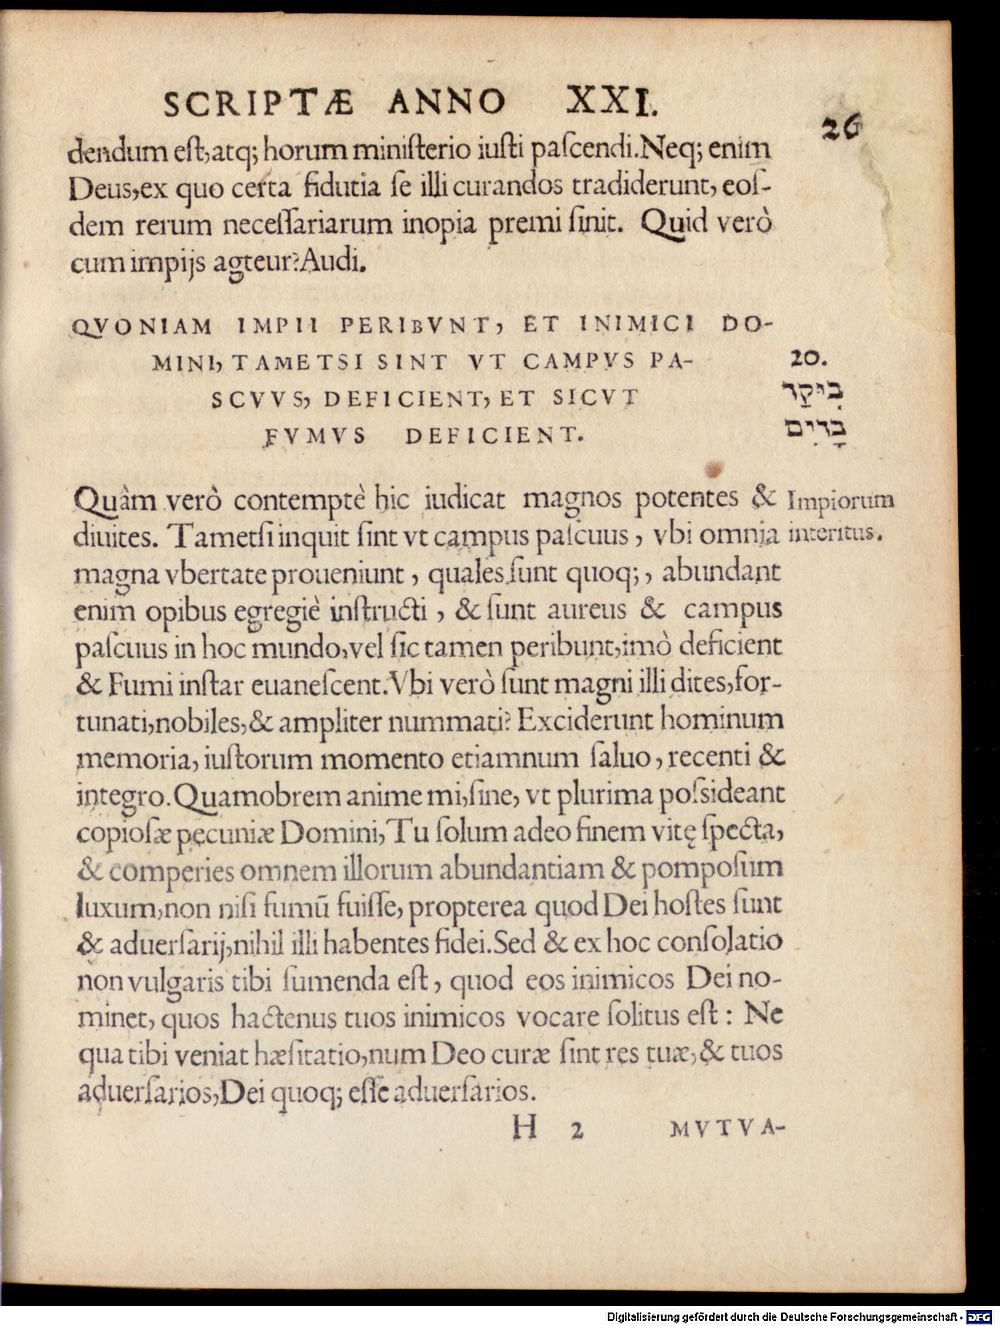 SCRIPTÆ ANNO XXI.
26
dendum eſt, atq; horum miniſterio iuſti paſcendi. Neq; enim
Deus, ex quo certa fidutia ſe illi curandos tradiderunt, eoſ-
dem rerum neceſſariarum inopia premi ſinit. Quid verò
cum impijs agteur? Audi.
QVONIAM IMPII PERIBVNT, ET INIMICI DO-
MINI, TAMETSI SINT VT CAMPVS PA-
SCVVS, DEFICIENT, ET SICVT
FVMVS DEFICIENT.
20.
בִּיקַר
כָּרִים
Quàm verò contemptè hic iudicat magnos potentes &
diuites. Tametſi inquit ſint vt campus paſcuus, vbi omnia
Impiorum
interitus.
magna vbertate proueniunt, quales ſunt quoq;, abundant
enim opibus egregiè inſtructi, & ſunt aureus & campus
paſcuus in hoc mundo, vel ſic tamen peribunt, imò deficient
& Fumi inſtar euaneſcent. Vbi verò ſunt magni illi dites, for-
tunati, nobiles, & ampliter nummati? Exciderunt hominum
memoria, iuſtorum momento etiamnum ſaluo, recenti &
integro. Quamobrem anime mi, ſine, vt plurima poſsideant
copioſæ pecuniæ Domini, Tu ſolum adeo finem vitę ſpecta,
& comperies omnem illorum abundantiam & pompoſum
luxum, non niſi fumū fuiſſe, propterea quod Dei hoſtes ſunt
& aduerſarij, nihil illi habentes fidei. Sed & ex hoc conſolatio
non vulgaris tibi ſumenda eſt, quod eos inimicos Dei no-
minet, quos hactenus tuos inimicos vocare ſolitus eſt: Ne
qua tibi veniat hæſitatio, num Deo curæ ſint res tuæ, & tuos
aduerſarios, Dei quoq; eſſe aduerſarios.
H 2 MVTVA-
Digitalisierung gefördert durch die Deutsche Forschungsgemeinschaft - DFG